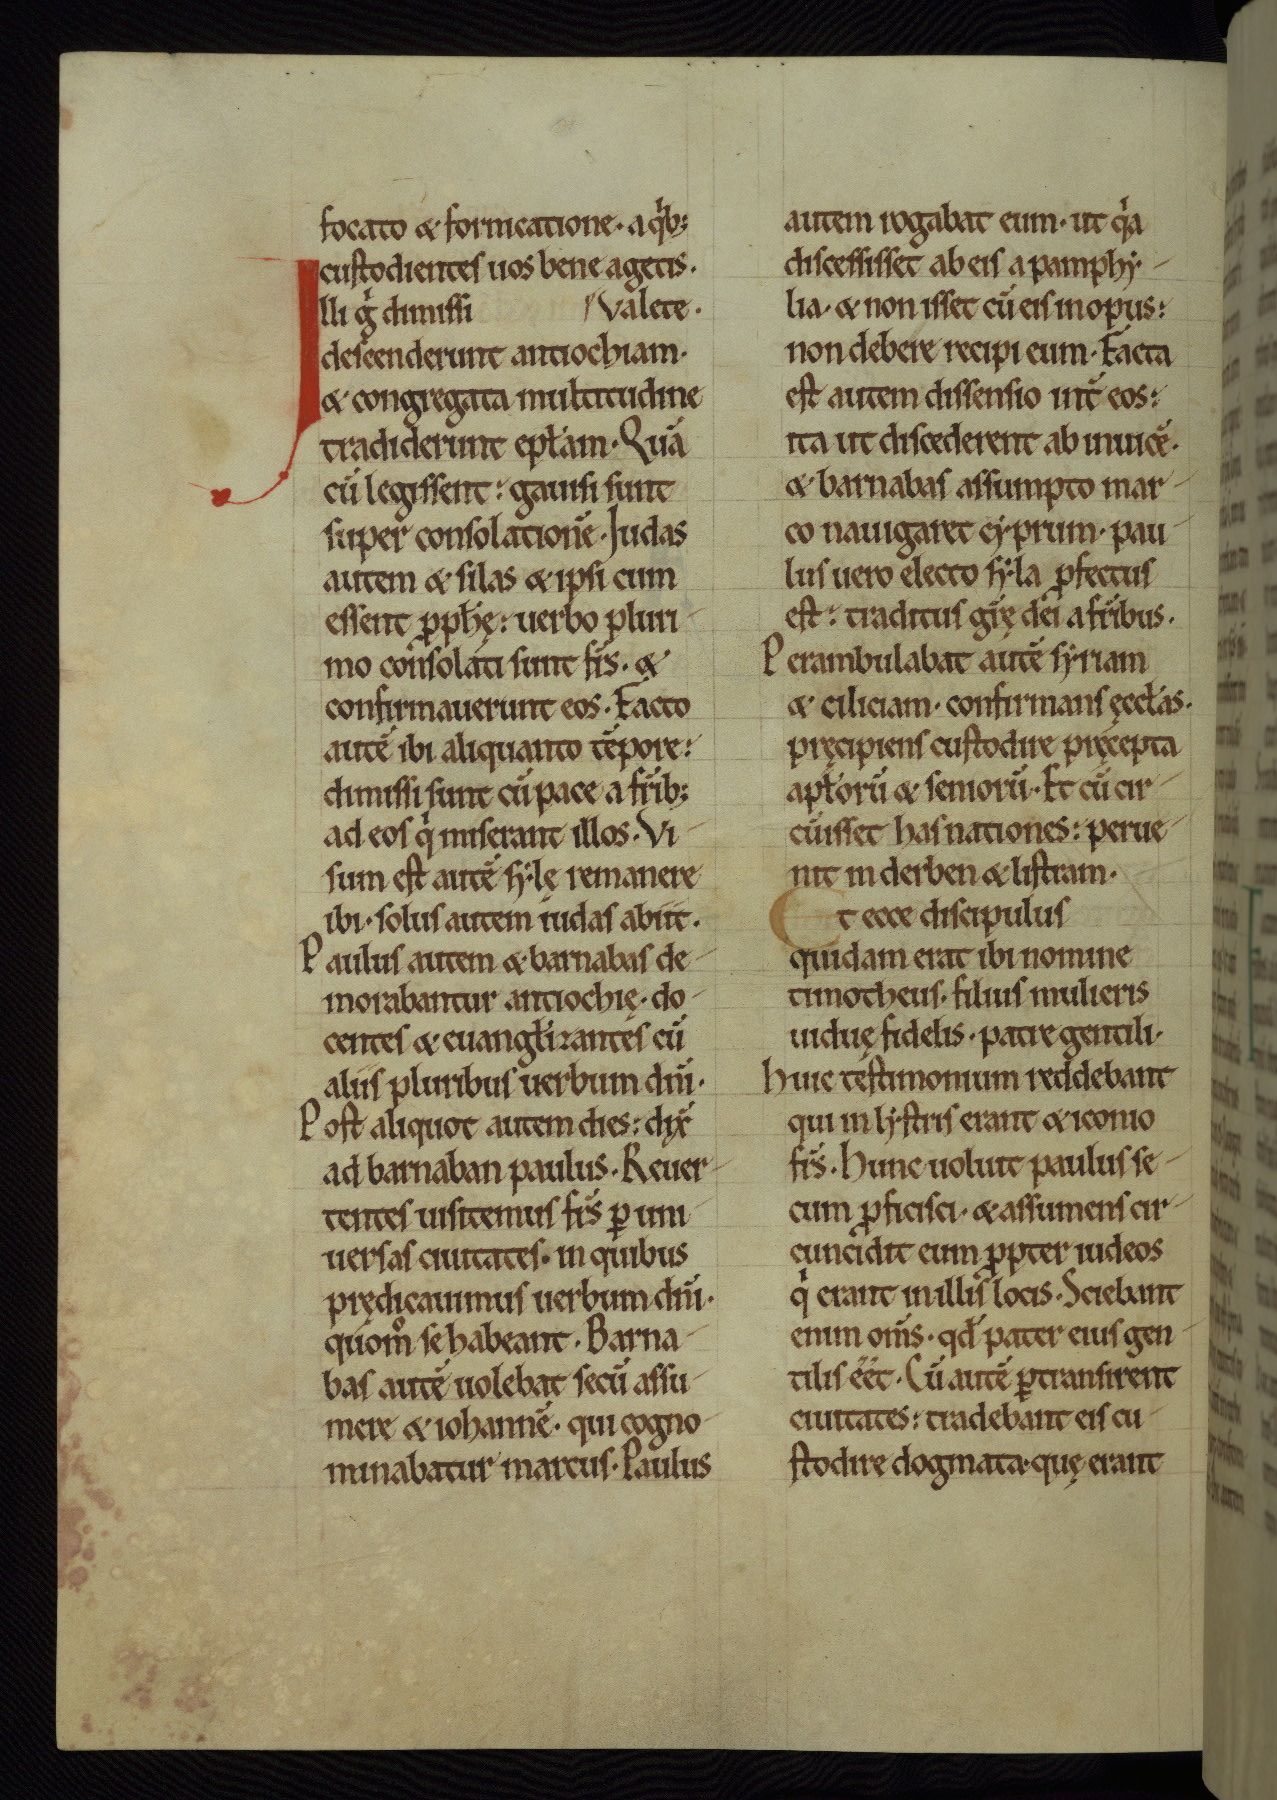 focato & fornicatione· a qͥb;
custodientes uos bene agetis·
Illi gͥ dimissi valete·
descenderunt antiochiam·
& congregata multitudine
tradiderunt epłam· Quā
cū legissent: gauisi sunt
super consolatione᷎· Judas
autem & silas & ipsi cum
essent ꝓphę: uerbo pluri-
mo consolati sunt fr̄s· &
confirmauerunt eos· Facto
autē ibi aliquanto tēpore:
dimissi sunt cū pace a fr̄ib;
ad eos qͥ miserant illos· Vi-
sum est autē sẏlę remanere
ibi· solus autem iudas abiit·
Paulus autem & barnabas de-
morabantur antiochię· do-
centes & euangłizantes cū
aliis pluribus uerbum dn̄i·
Post aliquot autem dies: dix̄
ad barnaban paulus· Reuer-
tentes uisitemus fr̄s ꝑ uni-
uersas ciuitates· in quibus
prędicauimus uerbum dn̄i·
quom̊ se habeant· Barna-
bas autē uolebat secū assu-
mere & iohannē· qui cogno-
minabatur marcus· Paulus
autem rogabat eum· ut qͥa
discessisset ab eis a pamphẏ-
lia· & non isset cū eis in opus:
non debere recipi eum· Facta
est autem dissensio int̄ eos:
ita ut discederent ab inuicē·
& barnabas assumpto mar-
co nauigaret cẏprum· pau-
lus uero electo sẏla ꝓfectus
est: traditus gr̄ę dei a fr̄ibus·
Perambulabat autē sẏriam
& ciliciam· confirmans ęccłas·
pręcipiens custodire pręcepta
apłorū & seniorū· Et cū cir-
cūisset has nationes: perue-
nit in derben & listram·
Et ecce discipulus
quidam erat ibi nomine
timotheus· filius mulieris
uiduę fidelis· patre gentili·
Huic testimonium reddebant
qui in lẏstris erant & iconio
fr̄s· Hunc uoluit paulus se-
cum ꝓficisci· & assumens cir-
cuncidit eum ꝓpter iudeos
qͥ erant in illis locis· Sciebant
enim om̄s· qd̄ pater eius gen-
tilis eēt· Cū autē ꝑtransirent
ciuitates: tradebant eis cu-
stodire dogmata· quę erant